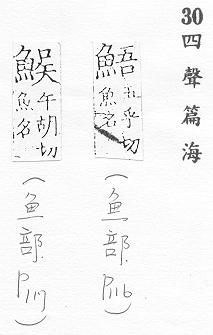 30四聲篇海
䱐五乎切魚名
（魚部 P116）
䱋午胡切魚名
（魚部 P117）